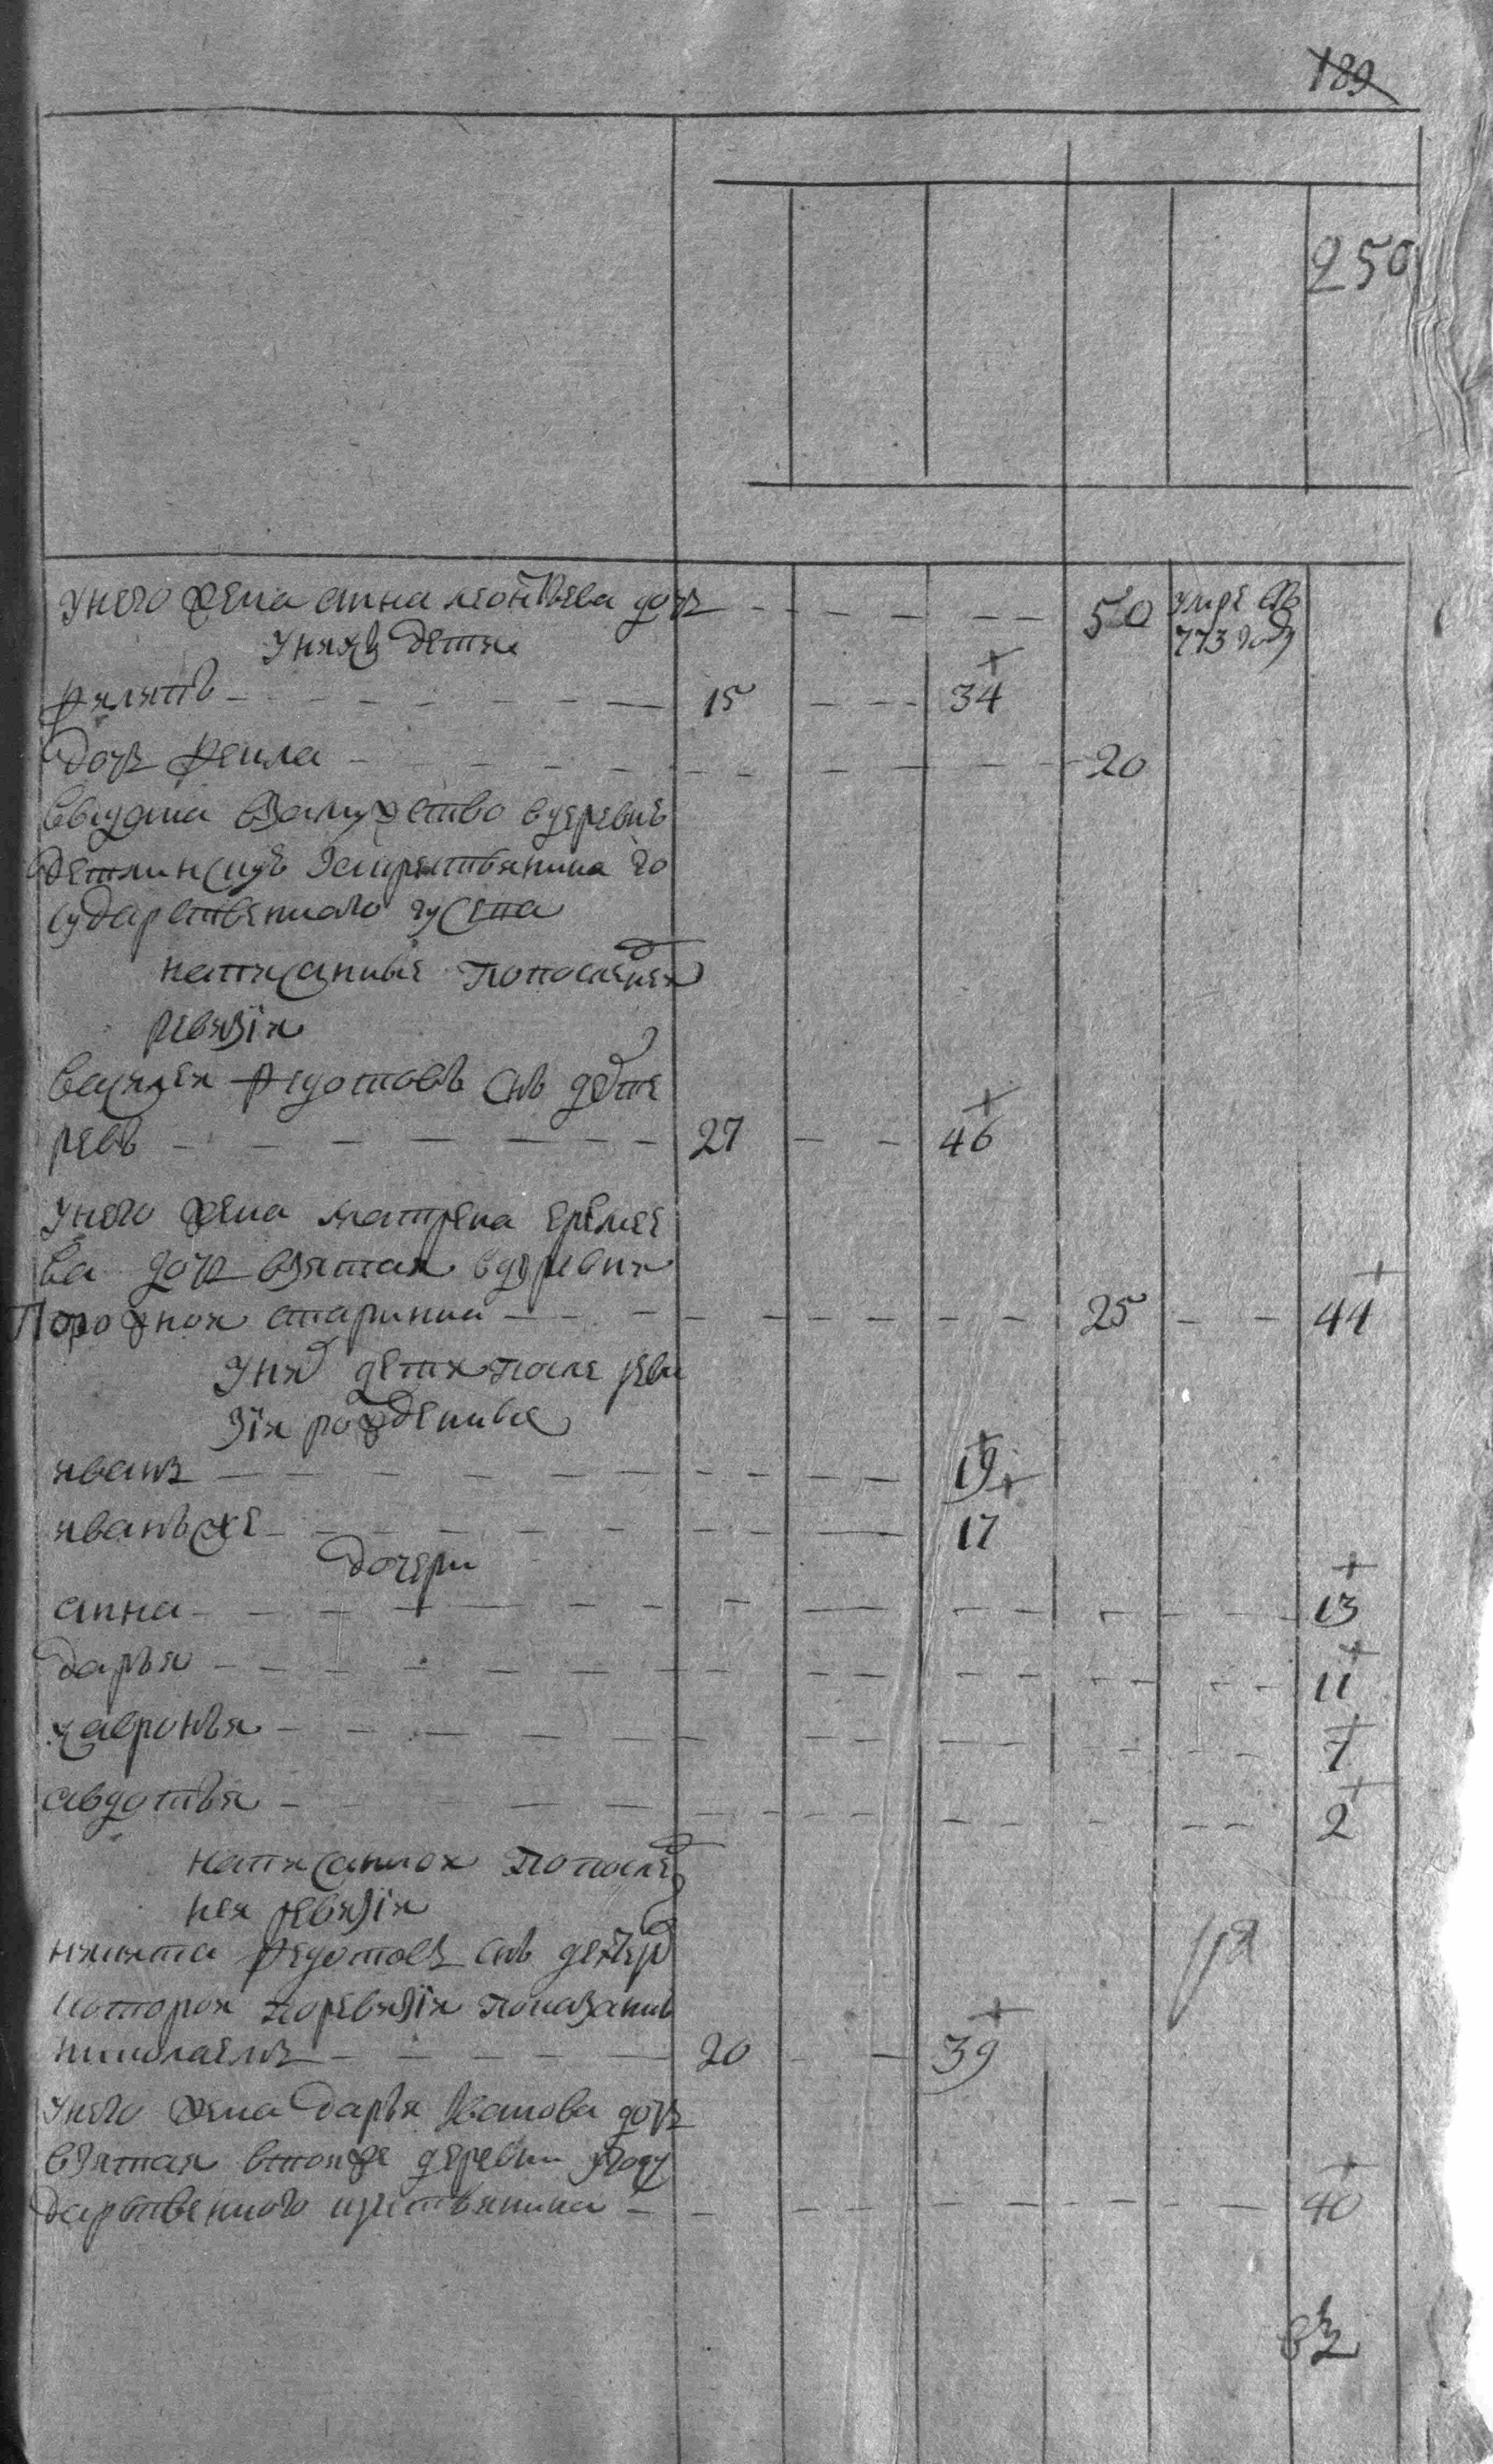 189
250
унего жена анна леонтьева дочь - - - 50 умре въ
773 году
унихъ дети
филипъ - - - 15 - - - 34
дочь фекла - - - 20
выдана взамужство вдеревне
за крестьянина го
сударственнаго
написанные попоследней
ревизiи
василей федотовъ снъ дехте
ревъ - - - 27 - - 46
унего жена матрена ереме
ва дочь взятая вдеревни
старинная - - - 25 - - 44
уних дети после реви
зiи рожденные
иванъ - - - 19
иванъ же - - - 17
дочери
анна - - - 13
дарья - - - 11
хавронья - - - 7
авдотья - - - 2
написанной попослед
ней ревизiи
никита федотовъ снъ дехтер
которой поревизiи показанъ
николаемъ - - - 20 - - 39
унего жена дарья иванова дочь
взятая втойже деревни угосу
дарственного крестьянина - - - 40